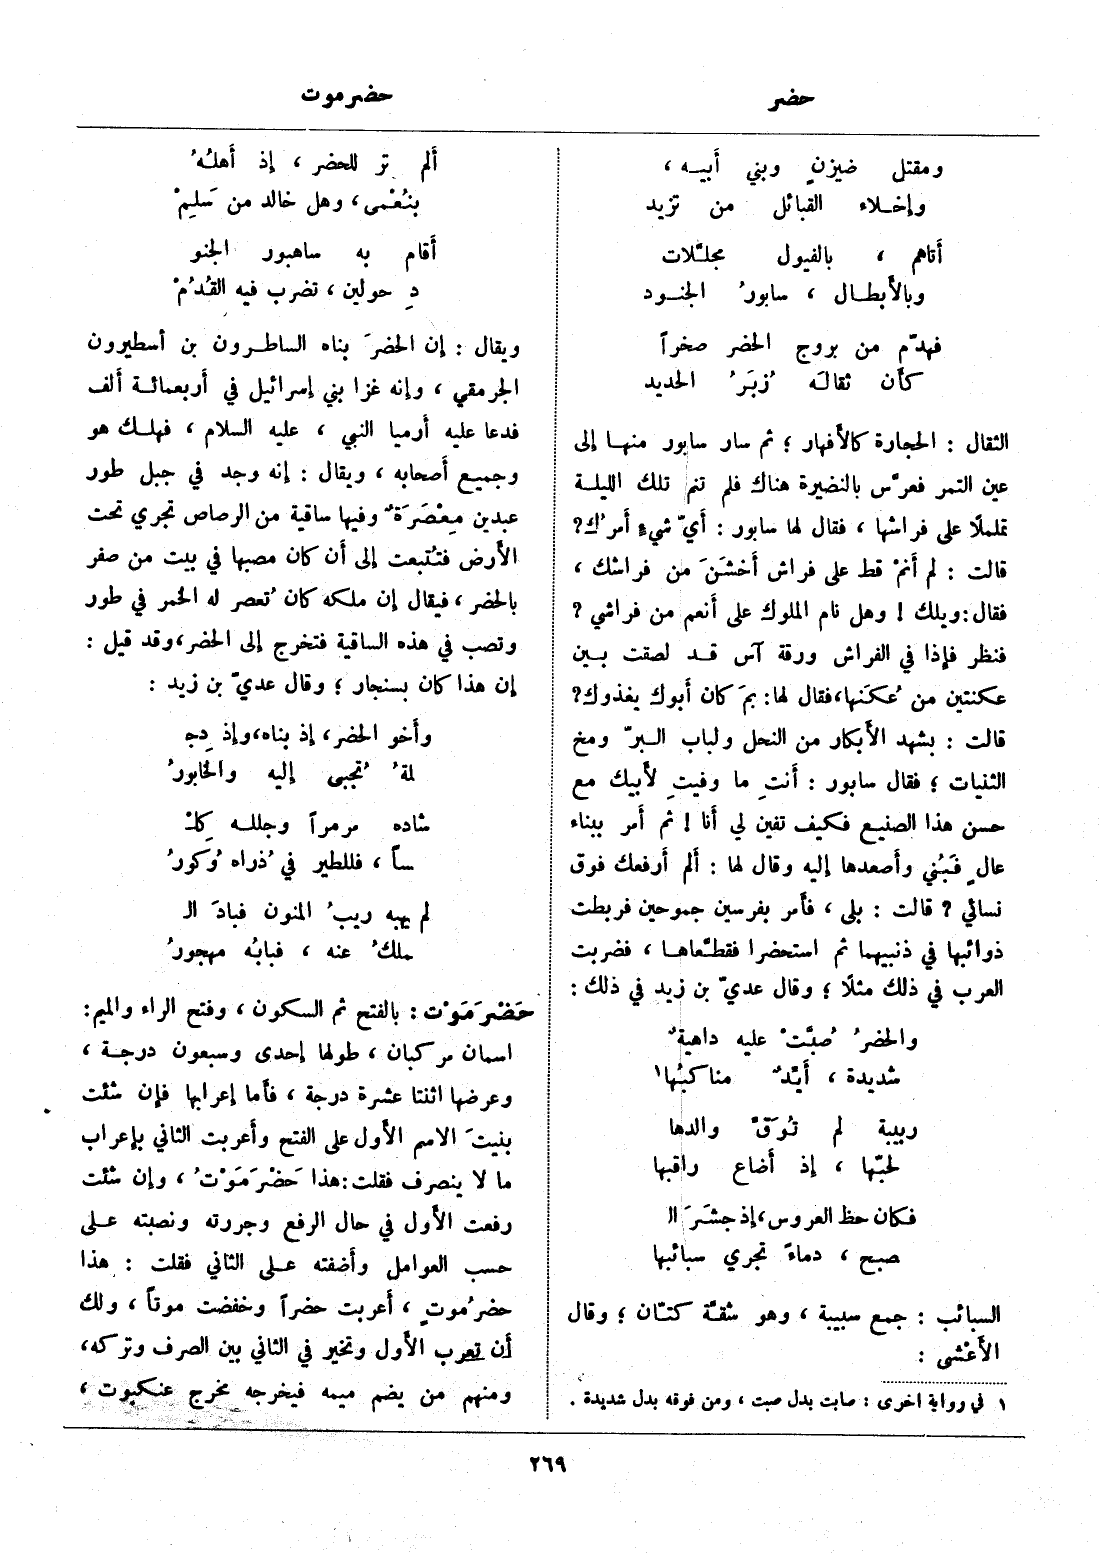 حضر
حضرموت
ومقتل ضيزنٍ وبني أبيه ،
وإخلاء القبائل من تزيد
أتاهم ، بالفيول مجلَّلات
وبالأبطال ، سابورُ الجنود
فهدّم من بروج الحضر صخراً
كأن ثقاله زُبَرُ الحديد
الثقال : الحجارة كالأفهار ؛ ثم سار سابور منها إلى
عين التمر فعرّس بالنضيرة هناك فلم تنم تلك الليلة
تململًا على فراشها ، فقال لها سابور : أيّ شيءٍ أمرُك؟
قالت : لم أنمْ قط على فراش أخشَنَ من فراشك ،
فقال: ويلك ! وهل نام الملوك على أنعم من فراشي ؟
فنظر فإذا في الفراش ورقة آس قد لصقت بين
عكنتين من عُكَنها، فقال لها: بمَ كان أبوك يغذوك؟
قالت : بشهد الأبكار من النحل ولباب البرّ ومخ
الثنيات ؛ فقال سابور : أنتِ ما وفيتِ لأبيك مع
حسن هذا الصنيع فكيف تفين لي أنا ! ثم أمر ببناء
عالٍ فَبُني وأصعدها إليه وقال لها : ألم أرفعك فوق
نسائي ؟ قالت : بلى ، فأمر بفرسين جموحين فربطت
ذوائبها في ذنبيهما ثم استحضرا فقطّعاها ، فضربت
العرب في ذلك مثلًا ؛ وقال عديّ بن زيد في ذلك :
والحضرُ صُبَّتْ عليه داهيةٌ
شديدة ، أيِّدٌ مناكبُها١
ربيبة لم تُوَقَّ والدها
لحبّها ، إذ أضاع راقبها
فكان حظ العروس، إذ جشَرَ ال
صبح ، دماءً تجري سبائبها
السبائب : جمع سبيبة ، وهو شقّة كتّان ؛ وقال
الأعْشى :
١ في رواية اخرى : صابت بدل صبت ، ومن فوقه بدل شديدة .
ألم تر للحضر ، إذ أهلُهُ
بنُعْمى ، وهل خالد من سَلِمْ
أقام به ساهبور الجنو
دِ حولين ، تضرب فيه القُدُمْ
ويقال : إن الحضرَ بناه الساطرون بن أسطيرون
الجرمقي ، وإنه غزا بني إسرائيل في أربعمائة ألف
فدعا عليه أرميا النبي ، عليه السلام ، فهلك هو
وجميع أصحابه ، ويقال : إنه وجد في جبل طور
عبدين مِعْصَرَةٌ وفيها ساقية من الرصاص تجري تحت
الأرض فتُتبعت إلى أن كان مصبها في بيت من صفر
بالحضر ، فيقال إن ملكه كان تُعصر له الخمر في طور
وتصب في هذه الساقية فتخرج إلى الحضر، وقد قيل :
إن هذا كان بسنجار ؛ وقال عديّ بن زيد :
وأخو الحضر، إذ بناه، وإذ دِج
لةُ تُجبى إليه والخابورُ
شاده مرمراً وجلله كِلْ
ساً ، فللطير في ذُراه وُكورُ
لم يهبه ريبُ المنون فبادَ ال
ملكُ عنه ، فبابُه مهجورُ
حَضْرَمَوْت : بالفتح ثم السكون ، وفتح الراء والميم:
اسمان مركبان ، طولها إحدى وسبعون درجة ،
وعرضها اثنتا عشرة درجة ، فأما إعرابها فإن شئت
بنيتَ الاسم الأول على الفتح وأعربت الثاني بإعراب
ما لا ينصرف فقلت: هذا حَضْرَمَوْتُ ، وإن شئت
رفعت الأول في حال الرفع وجررته ونصبته على
حسب العوامل وأضفته على الثاني فقلت : هذا
حضرُموتٍ ، أعربت حضراً وخفضت موتاً ، ولك
أن تعرب الأول وتخير في الثاني بين الصرف وتركه،
ومنهم من يضم ميمه فيخرجه مخرج عنكبوت ،
٢٦٩